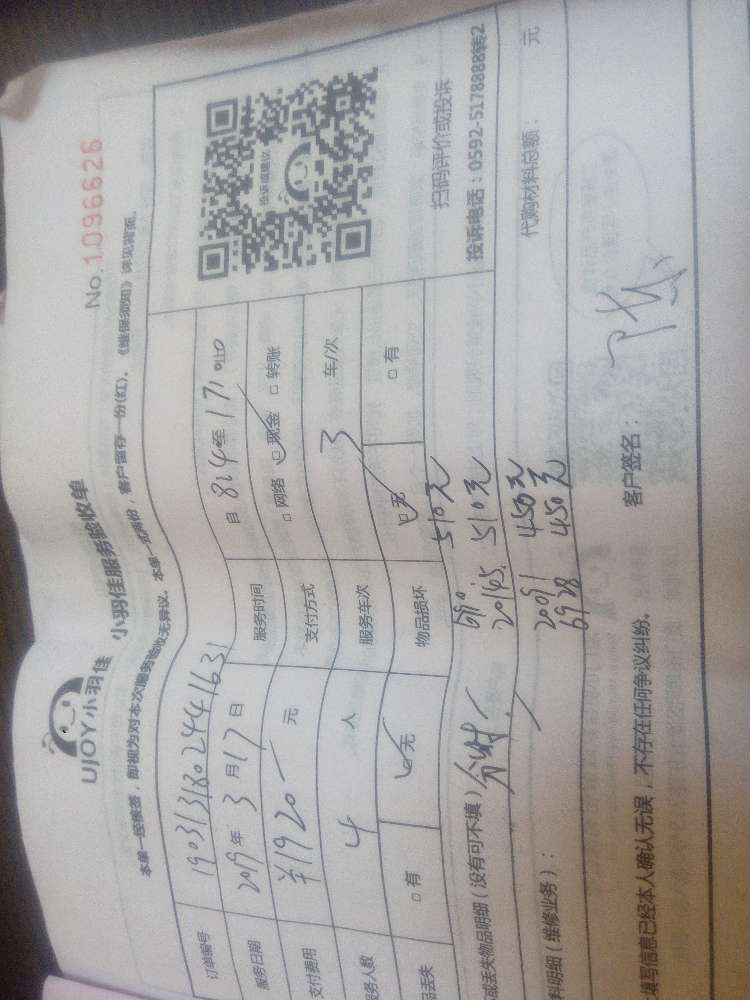 No.1096626
UJOY小羽佳 小羽佳服务验收单
本单一经接签,即视为对本次服务验收无异议。本单一式两份,客户留存一份(红)。《维保须知》详见背面。
订单编号 190313180244 1631
服务日期 2019年3月17日 服务时间 自 814至171 止
支付费用 ¥1920 元 支付方式 □网络 ☑现金 □转账
服务人数 4 人 服务车次 3 车/次
品丢失 □有 ☑无 物品损坏 ☑无 □有
投诉或建议
扫码评价或投诉
投诉电话:0592-5178888转2
或丢失物品明细(没有可不填)
690 510元
20145 510元
2009 450元
6928 450元
料明细(维修业务): 代购材料总额: 元
填写信息已经本人确认无误,不存在任何争议纠纷。 客户签名: